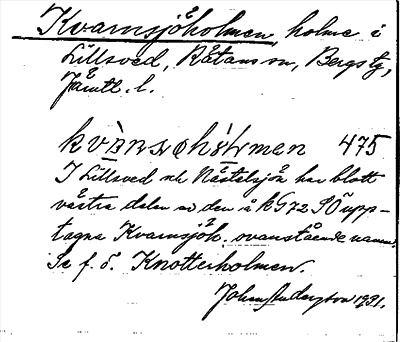 Kvarnsjöholmen, holme i
Lillsved, Råtans sn, Bergs tg,
Jämtl. l.
475
I Lillsved och Nästelsjön har blott
västra delen av den å kG72 SO upp-
tagna Kvarnsjöh. ovanstående namn.
Se f. ö. Knotterholmen.
Johan Anderson 1931.